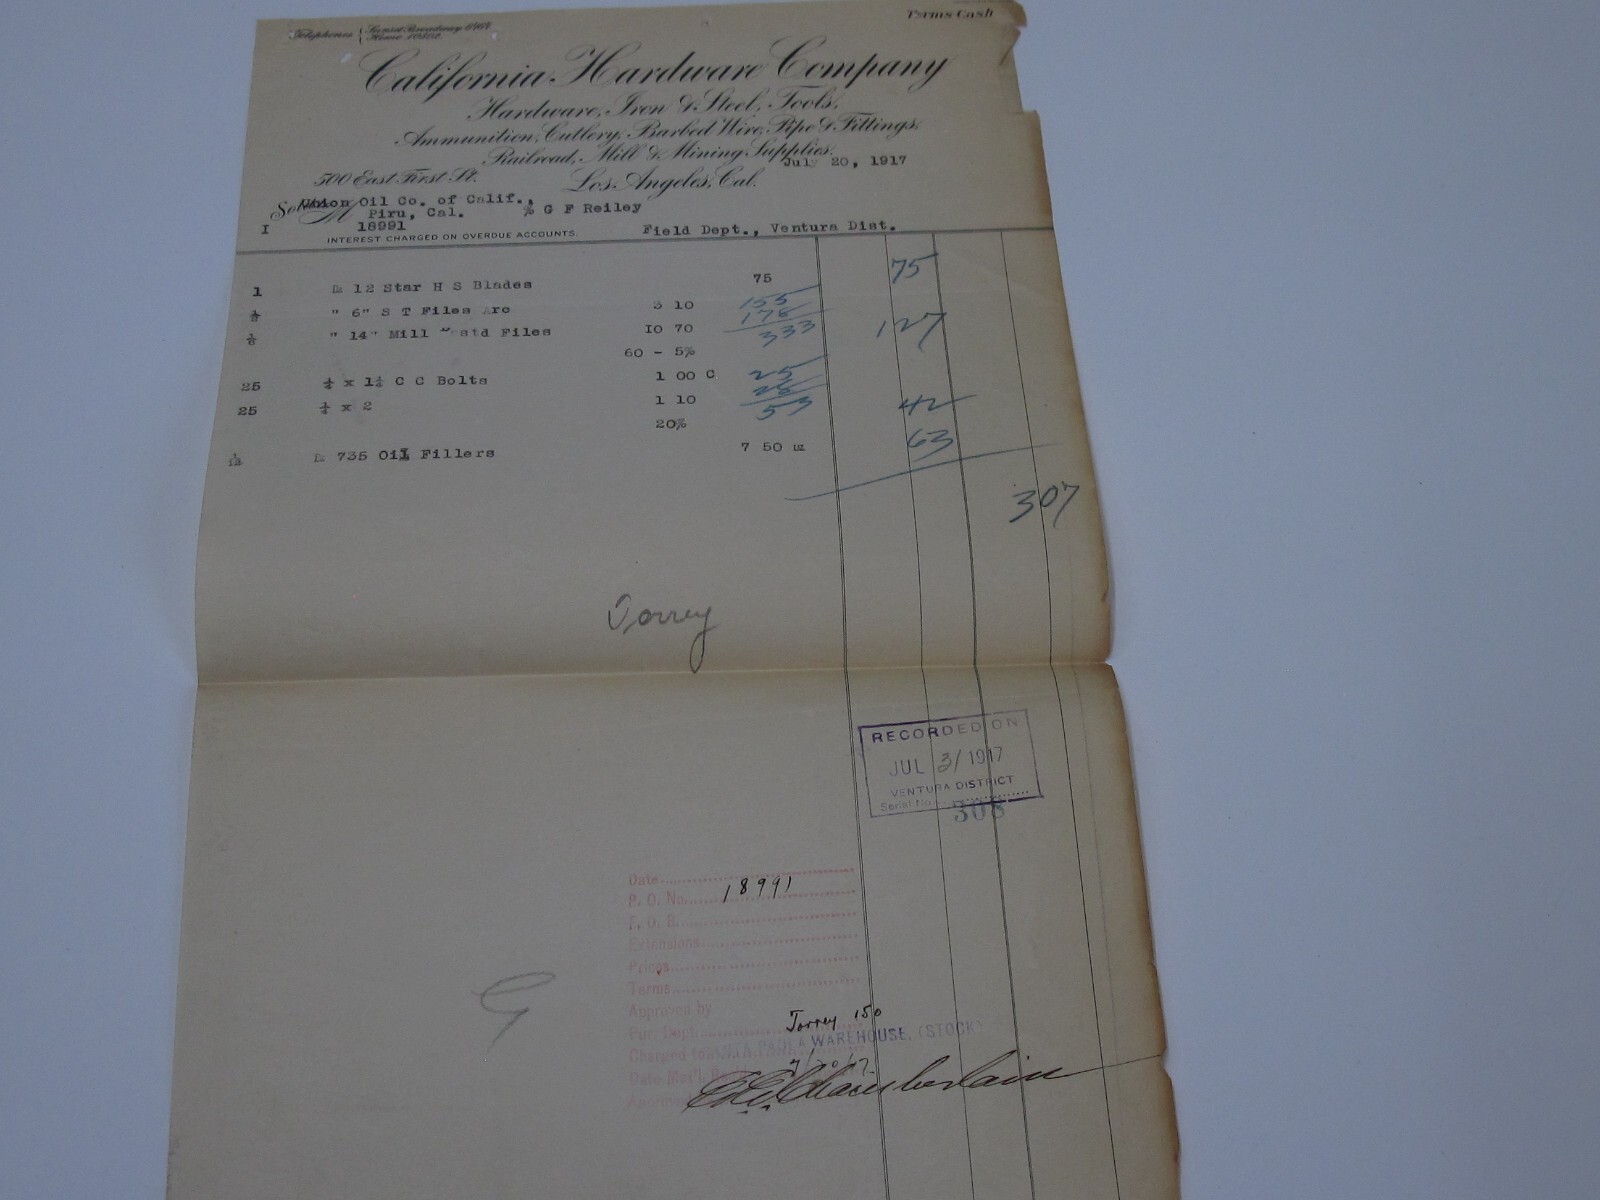 Terms Cash
Telephones { Sunset Broadway 6963
Home 10302.
California Hardware Company
Hardware, Iron & Steel, Tools,
Ammunition, Cutlery, Barbed Wire, Pipe & Fittings,
Railroad, Mill & Mining Supplies.
July 20, 1917
500 East First St. Los Angeles, Cal.
Sold to M Union Oil Co. of Calif.,
Piru, Cal. % G F Reiley
I 18991 Field Dept., Ventura Dist.
INTEREST CHARGED ON OVERDUE ACCOUNTS.
1 Dz 12 Star H S Blades 75 75
½ " 6" S T Files Arc 3 10 155
" 14" Mill Bastd Files 10 70 178
333 127
60 - 5%
25 ¼ x 1½ C C Bolts 1 00 C 25
25 ¼ x 2 1 10 28
20% 53 42
1/12 Dz 735 Oil Fillers 7 50 Dz 63
307
Torrey
RECORDED ON
JUL 31 1917
VENTURA DISTRICT
Serial No.
308
Date
P. O. No. 18991
F. O. B.
Extensions
Prices
Terms
Approved by
Pur. Dept. Torrey 150
Charged to SANTA PAULA WAREHOUSE, (STOCK)
Date Mat'l. 7/20/17
Chamberlain
G